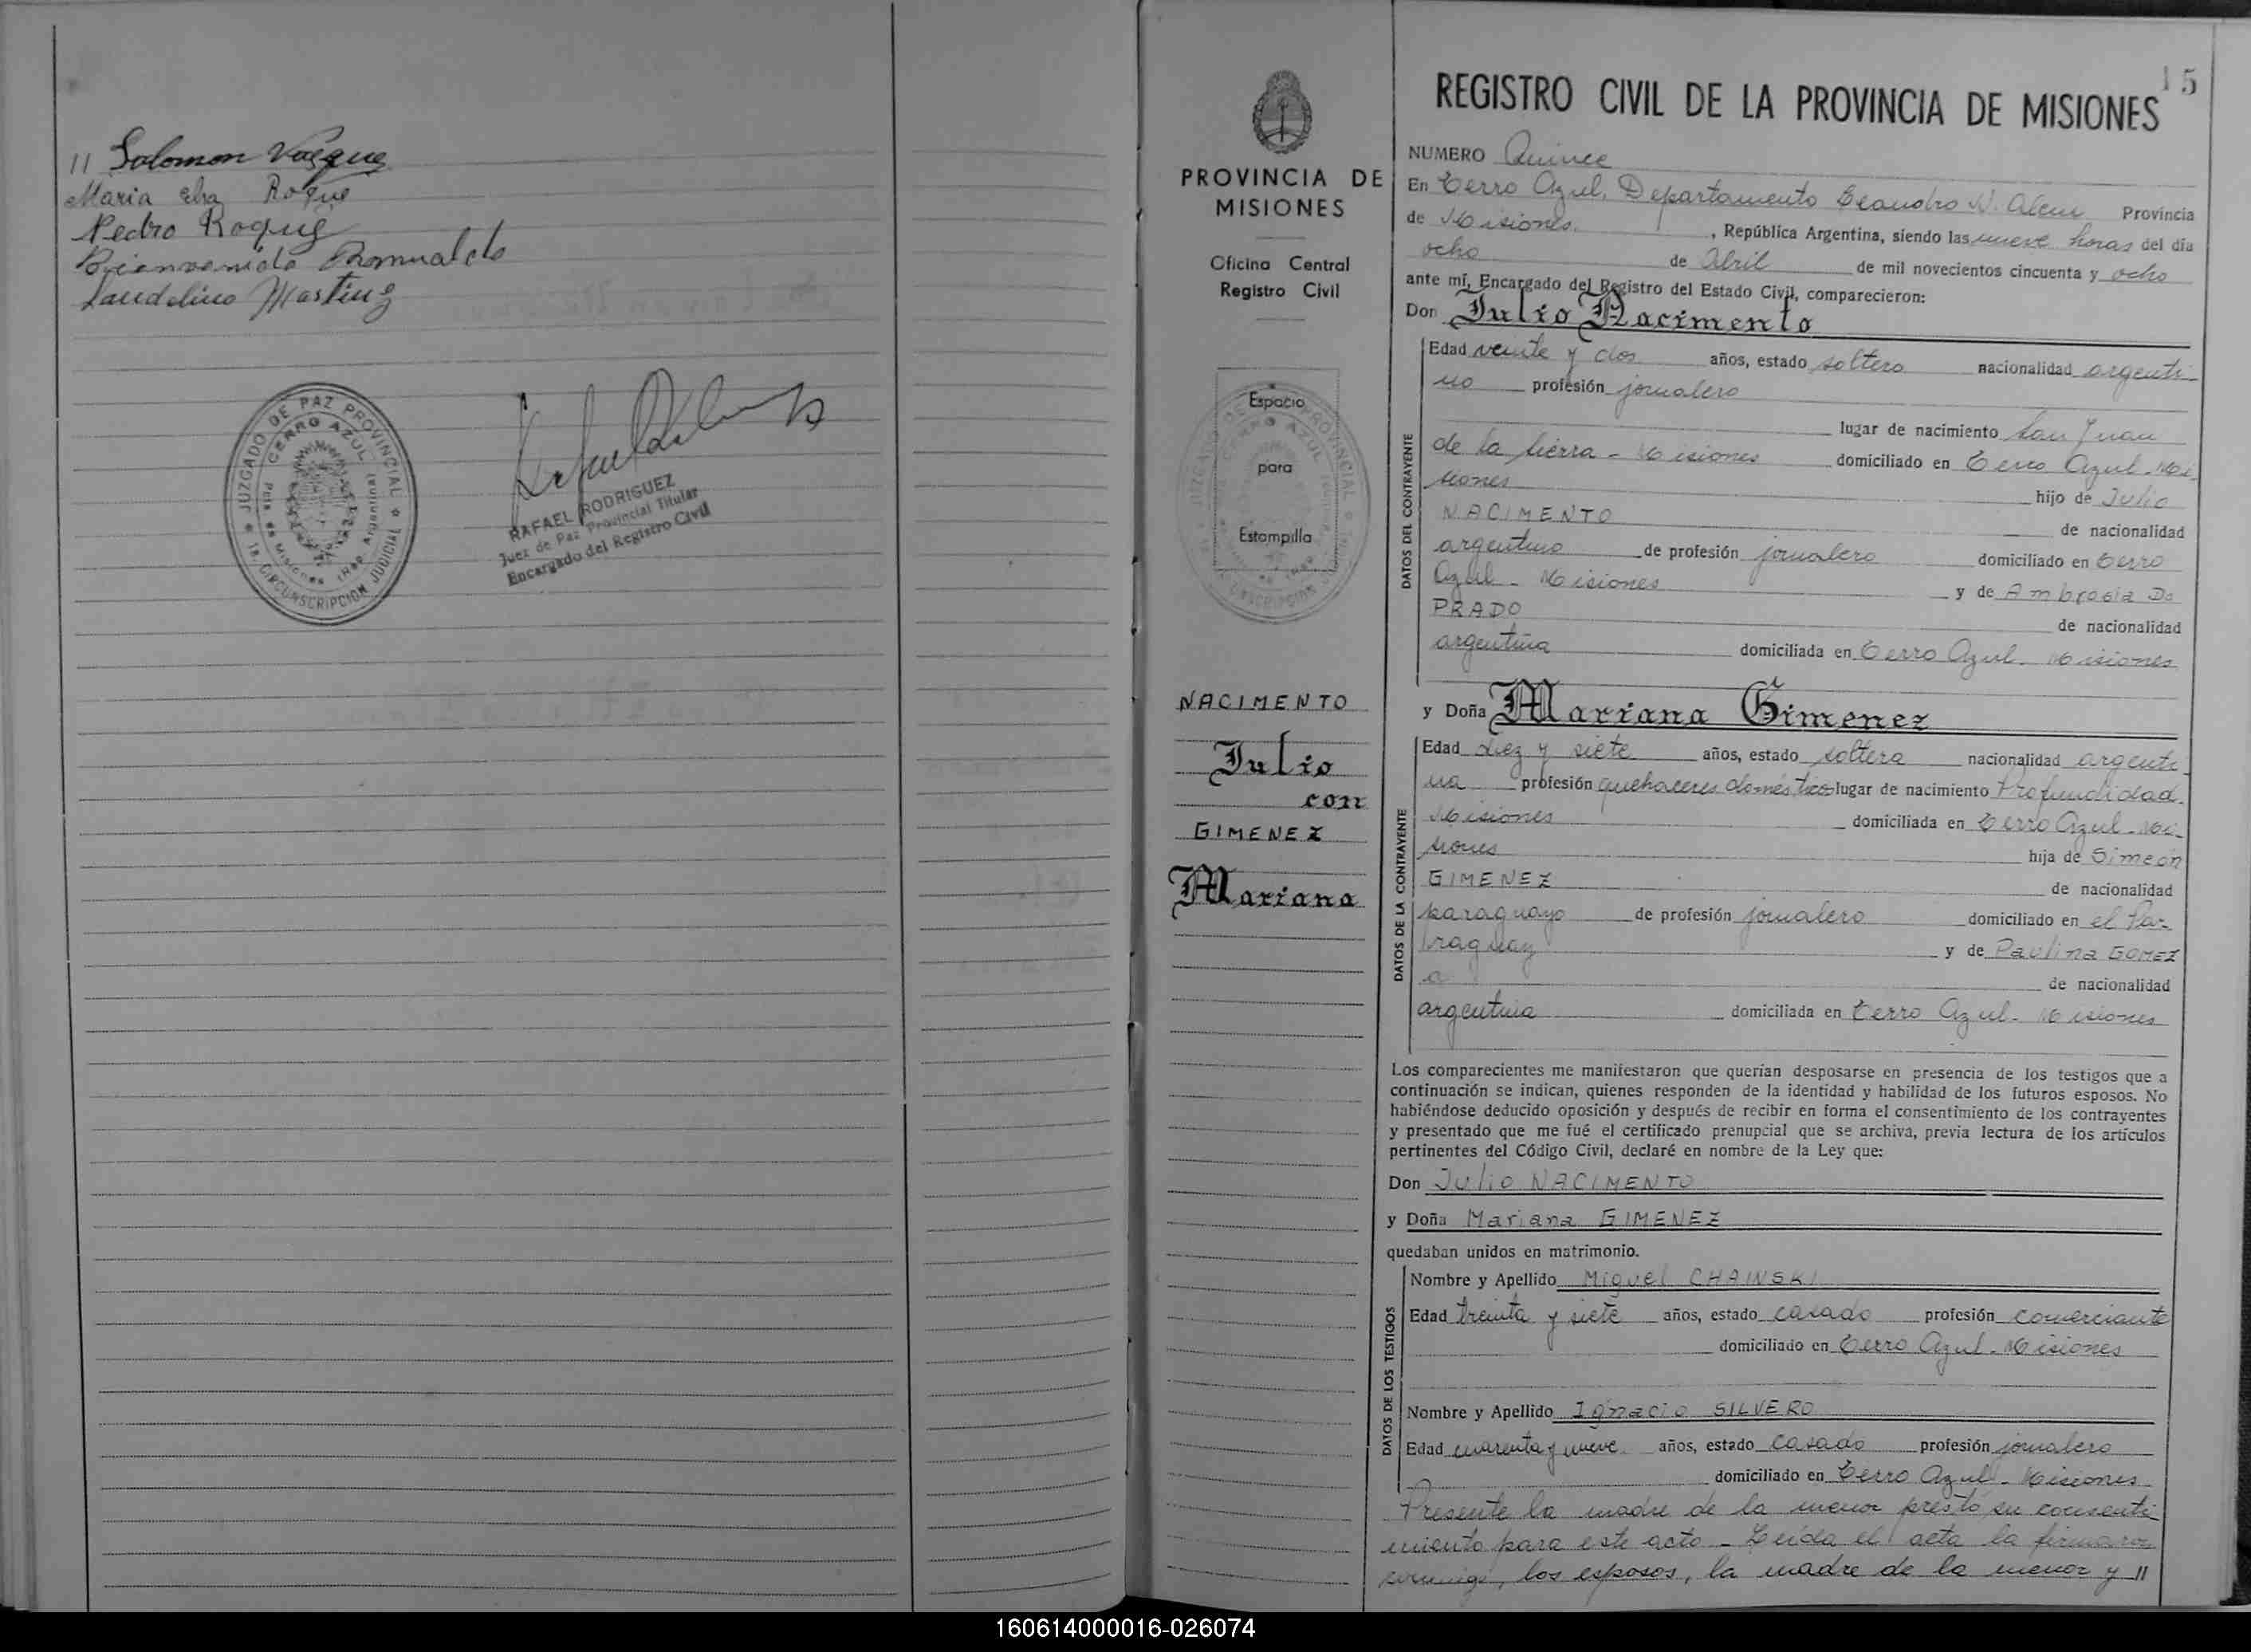 11 Salomon Vasque
Maria elva Roque
Pedro Roque
Bienvenida Romualdo
Laudelino Martinez
JUZGADO DE PAZ PROVINCIAL
CERRO AZUL
Pcia de Misiones (Rep Argentina)
1a CIRCUNSCRIPCION JUDICIAL
RAFAEL RODRIGUEZ
Juez de Paz Provincial Titular
Encargado del Registro Civil
PROVINCIA DE
MISIONES
Oficina Central
Registro Civil
Espacio
para
Estampilla
NACIMENTO
Julio
con
GIMENEZ
Mariana
15
REGISTRO CIVIL DE LA PROVINCIA DE MISIONES
NUMERO Quince
En Cerro Azul, Departamento Leandro N. Alem Provincia
de Misiones. , República Argentina, siendo las nueve horas del día
ocho de Abril de mil novecientos cincuenta y ocho
ante mí, Encargado del Registro del Estado Civil, comparecieron:
Don Julio Nacimento
DATOS DEL CONTRAYENTE
Edad veinte y dos años, estado soltero nacionalidad argenti-
no profesión jornalero
lugar de nacimiento San Juan
de la Sierra - Misiones domiciliado en Cerro Azul - Mi-
siones hijo de Julio
NACIMENTO de nacionalidad
argentino de profesión jornalero domiciliado en Cerro
Azul - Misiones y de Ambrosia Do
PRADO de nacionalidad
argentina domiciliada en Cerro Azul - Misiones
y Doña Mariana Gimenez
DATOS DE LA CONTRAYENTE
Edad diez y siete años, estado soltera nacionalidad argenti-
na profesión quehaceres domésticos lugar de nacimiento Profundidad.
Misiones domiciliada en Cerro Azul - Mi-
siones hija de Simeón
GIMENEZ de nacionalidad
paraguayo de profesión jornalero domiciliado en el Pa-
raguay y de Paulina GOMEZ
de nacionalidad
argentina domiciliada en Cerro Azul - Misiones
Los comparecientes me manifestaron que querían desposarse en presencia de los testigos que a
continuación se indican, quienes responden de la identidad y habilidad de los futuros esposos. No
habiéndose deducido oposición y después de recibir en forma el consentimiento de los contrayentes
y presentado que me fué el certificado prenupcial que se archiva, previa lectura de los artículos
pertinentes del Código Civil, declaré en nombre de la Ley que:
Don Julio NACIMENTO
y Doña Mariana GIMENEZ
quedaban unidos en matrimonio.
DATOS DE LOS TESTIGOS
Nombre y Apellido Miguel CHAINSKI
Edad treinta y siete años, estado casado profesión comerciante
domiciliado en Cerro Azul - Misiones
Nombre y Apellido Ignacio SILVERO
Edad cuarenta y nueve años, estado casado profesión jornalero
domiciliado en Cerro Azul - Misiones
Presente la madre de la menor prestó su consenti-
miento para este acto - Leída el acta la firmaron
conmigo, los esposos, la madre de la menor y 11
160614000016-026074